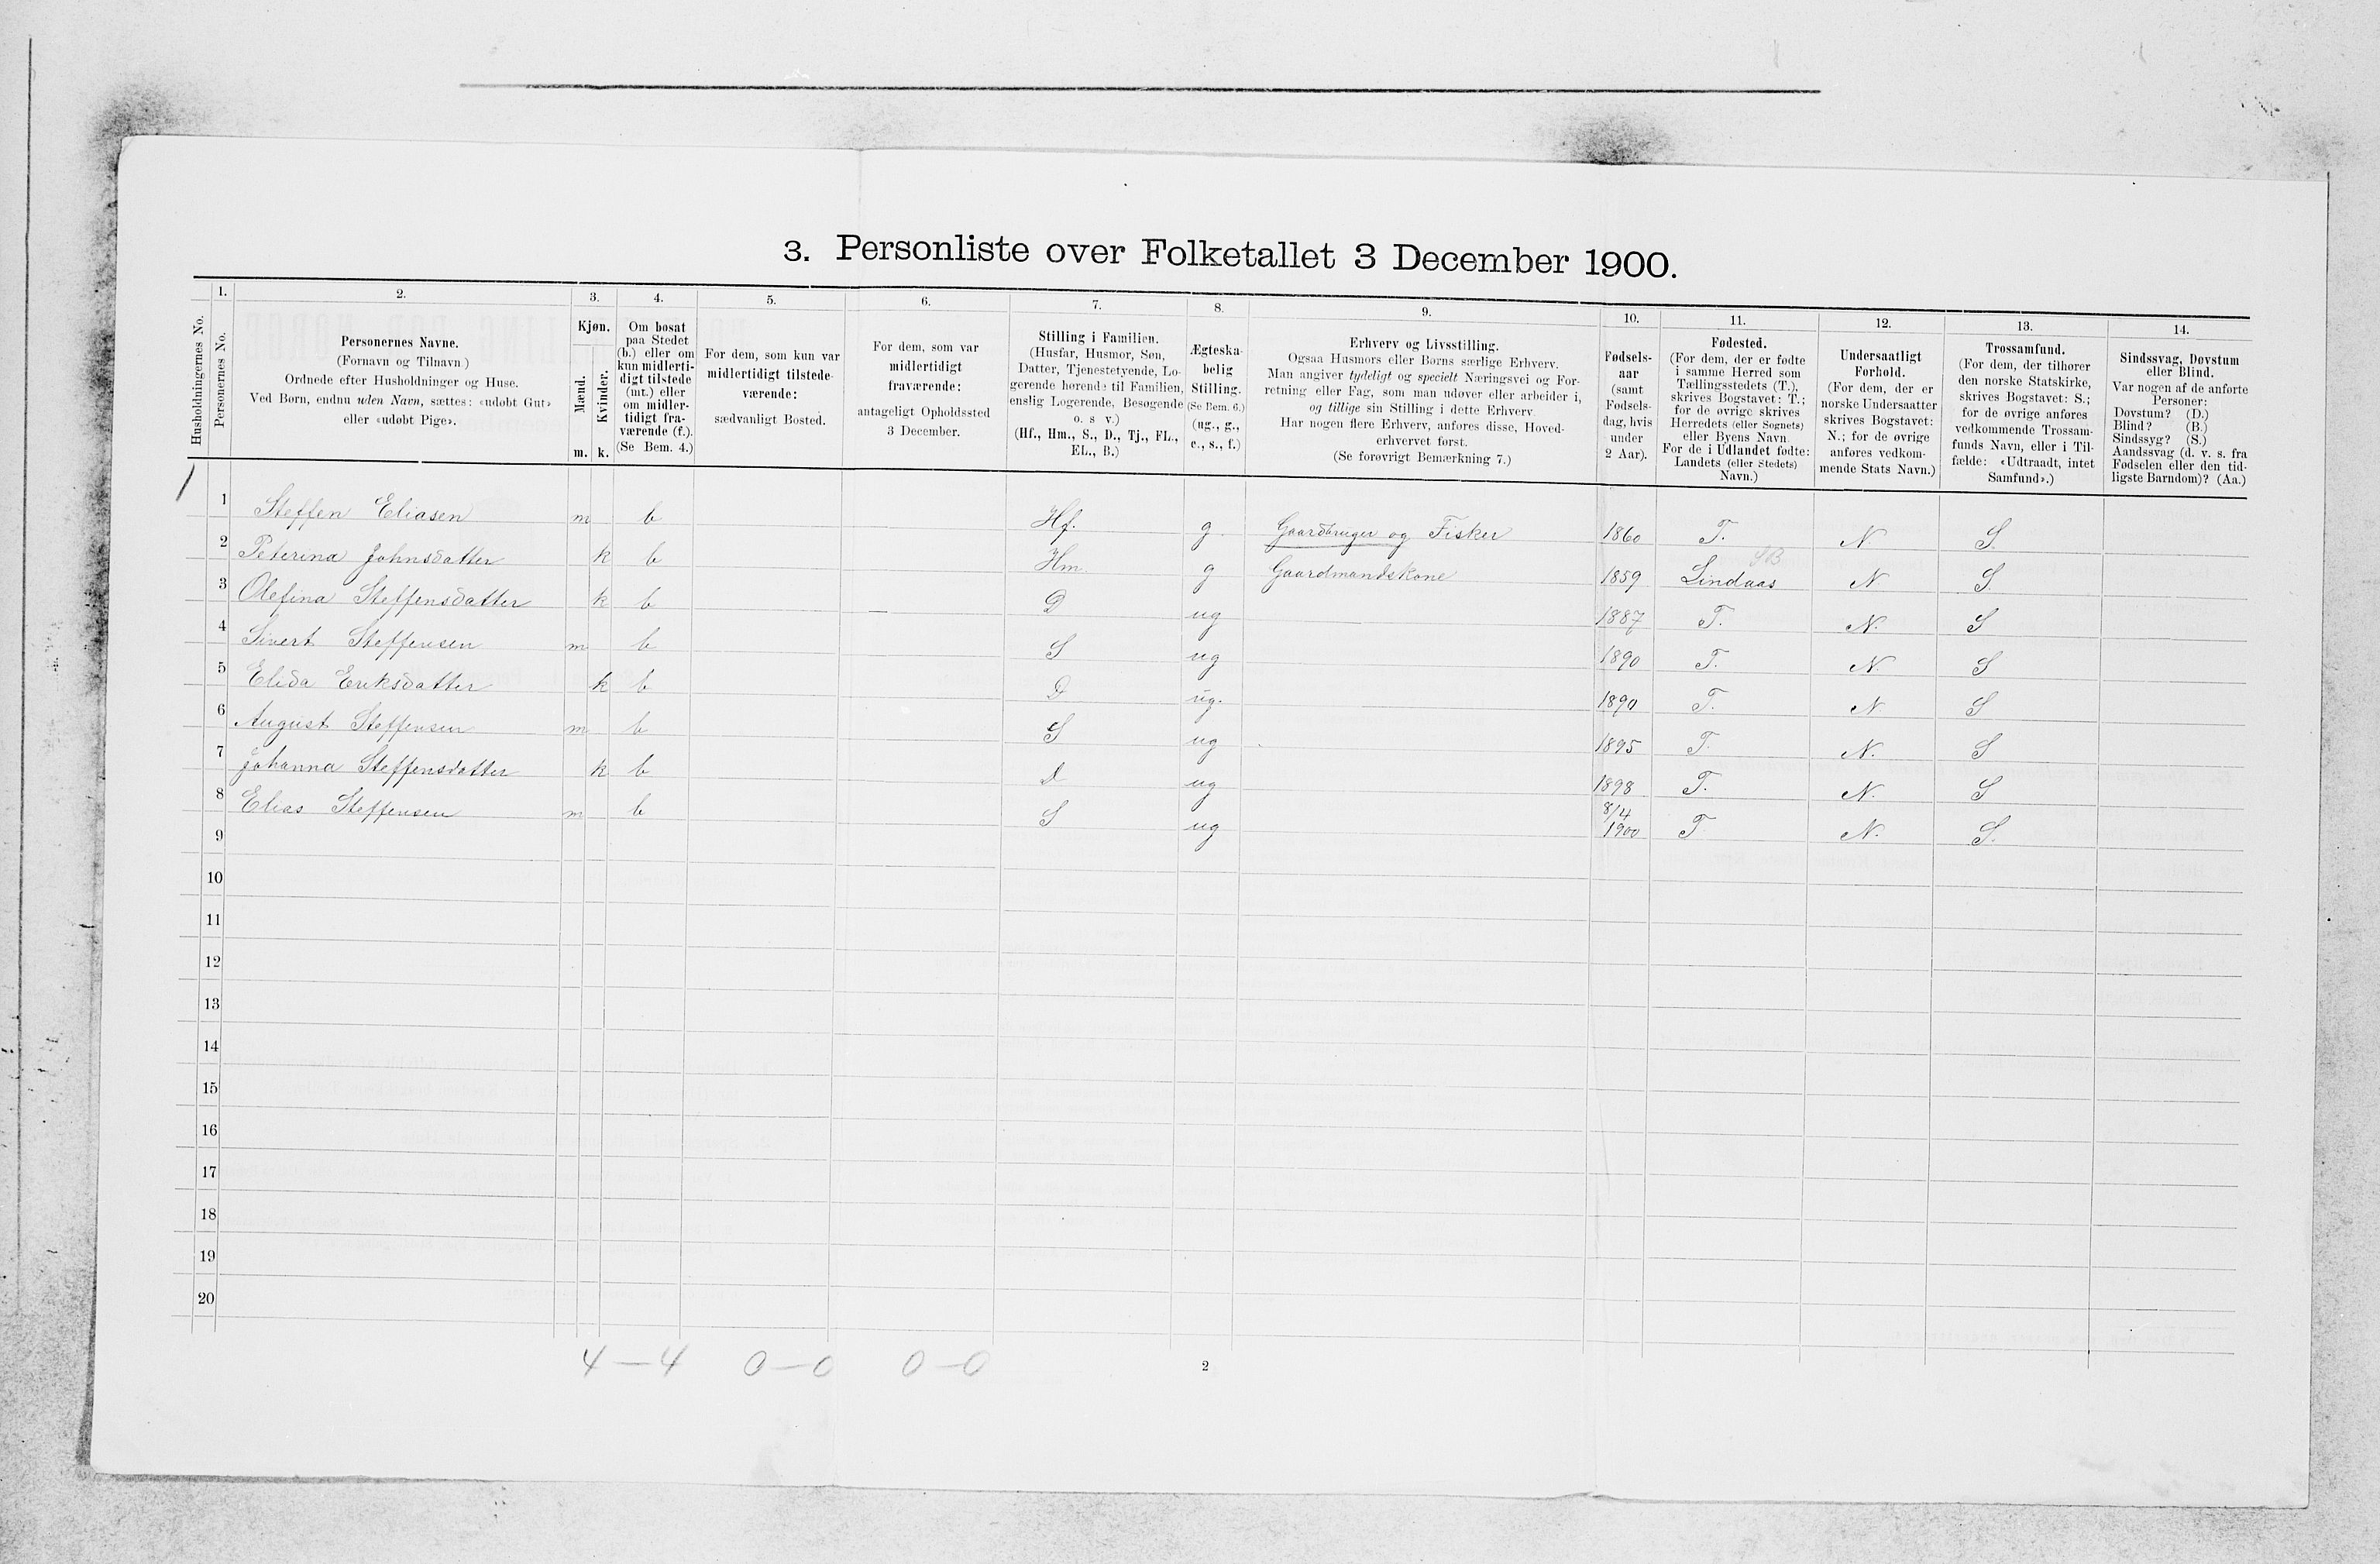 3. Personliste over Folketallet 3 December 1900.
1. 2. 3. 4. 5. 6. 7. 8. 9. 10. 11. 12. 13. 14.
Husholdningernes No.
Personernes No.
Personernes Navne.
(Fornavn og Tilnavn.)
Ordnede efter Husholdninger og Huse.
Ved Børn, endnu uden Navn, sættes: «udøbt Gut»
eller «udøbt Pige».
Kjøn.
Mænd.
Kvinder.
m. k.
Om bosat
paa Stedet
(b.) eller om
kun midlerti-
digt tilstede
(mt.) eller
om midler-
tidigt fra-
værende (f.).
(Se Bem. 4.)
For dem, som kun var
midlertidigt tilstede-
værende:
sædvanligt Bosted.
For dem, som var
midlertidigt
fraværende:
antageligt Opholdssted
3 December.
Stilling i Familien.
(Husfar, Husmor, Søn,
Datter, Tjenestetyende, Lo-
gerende hørende til Familien,
enslig Logerende, Besøgende
o. s. v.)
(Hf., Hm., S., D., Tj., FL.,
EL., B.)
Ægteska-
belig
Stilling.
(Se Bem. 6.)
(ug., g.,
e., s., f.)
Erhverv og Livsstilling.
Ogsaa Husmors eller Børns særlige Erhverv.
Man angiver tydeligt og specielt Næringsvei og For-
retning eller Fag, som man udøver eller arbeider i,
og tillige sin Stilling i dette Erhverv.
Har nogen flere Erhverv, anføres disse, Hoved-
erhvervet først.
(Se forøvrigt Bemærkning 7.)
Fødsels-
aar
(samt
Fødsels-
dag, hvis
under
2 Aar).
Fødested.
(For dem, der er fødte
i samme Herred som
Tællingsstedets (T.),
skrives Bogstavet: T.;
for de øvrige skrives
Herredets (eller Sognets)
eller Byens Navn.
For de i Udlandet fødte:
Landets (eller Stedets)
Navn.)
Undersaatligt
Forhold.
(For dem, der er
norske Undersaatter
skrives Bogstavet:
N.; for de øvrige
anføres vedkom-
mende Stats Navn.)
Trossamfund.
(For dem, der tilhører
den norske Statskirke,
skrives Bogstavet: S.;
for de øvrige anføres
vedkommende Trossam-
funds Navn, eller i Til-
fælde: «Udtraadt, intet
Samfund».)
Sindssvag, Døvstum
eller Blind.
Var nogen af de anførte
Personer:
Døvstum? (D.)
Blind? (B.)
Sindssyg? (S.)
Aandssvag (d. v. s. fra
Fødselen eller den tid-
ligste Barndom)? (Aa.)
1
1 Steffen Eliasen m b Hf. g. Gaardbruger og Fisker 1860 T. N S.
2 Peterina Johnsdatter k b Hm. g Gaardmandskone 1859 Lindaas N. S.
3 Olefina Steffensdatter k b D ug 1887 T. N. S
4 Sivert Steffensen m b S ug 1890 T. N. S
5 Elida Eriksdatter k b D ug. 1890 T. N. S
6 August Steffensen m b S ug 1895 T. N. S
7 Johanna Steffensdatter k b D ug 1898 T. N. S
8 Elias Steffensen m b S ug 8/4 1900 T N. S.
9
10
11
12
13
14
15
16
17
18
19
20
4 — 4 0 — 0 0 — 0
2